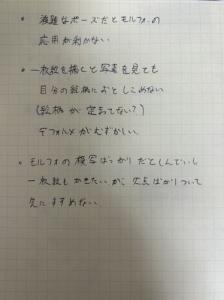 ・複雑なポーズだとモルフォの
応用が利かない
・一枚絵を描くと写真を見ても
自分の絵柄におとしこめない
(絵柄が定まってない?)
デフォルメがむずかしい、
・モルフォの模写ばっかりだとしんどいし
一枚絵もかきたいが、欠点ばかりついて
先にすすめない。